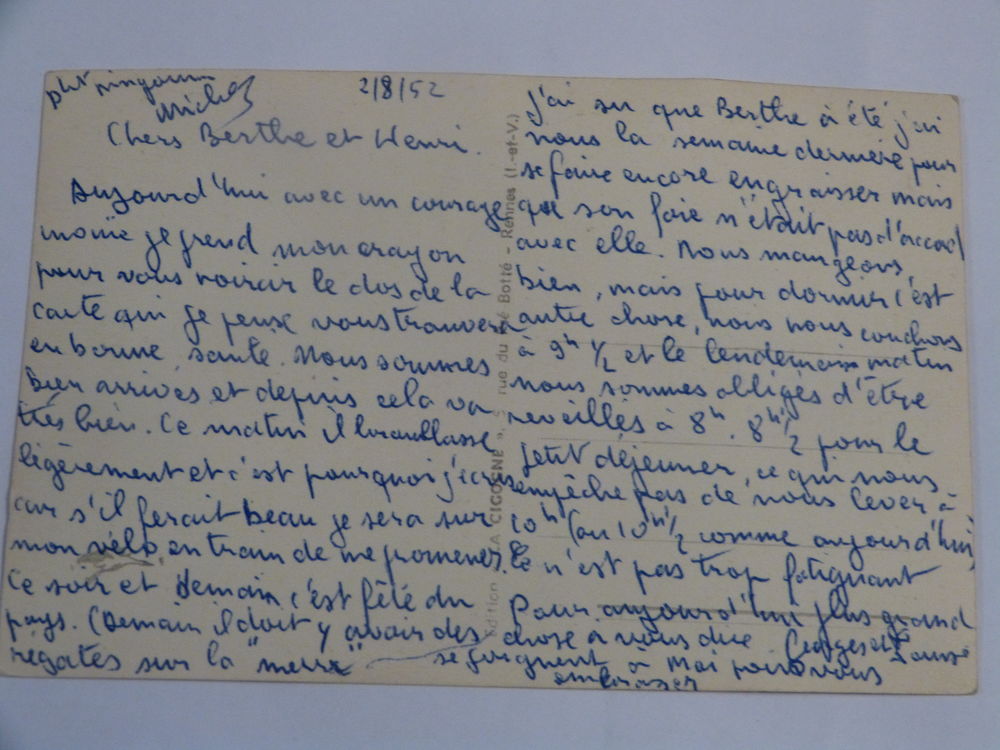 2/8/52
Michel
Chers Berthe et Henri.
Aujourd'hui avec un courage
moïe je prend mon crayon
pour vous noircir le dos de la
carte qui je peux vous trouvera
en bonne santé. Nous sommes
bien arrivés et depuis cela va
très bien. Ce matin il brouillasse
légèrement et c'est pourquoi j'écris
car s'il ferait beau je sera sur
mon vélo en train de me promener.
Ce soir et demain c'est fête du
pays. (Demain il doit y avoir des
régates sur la "merre"
j'ai su que Berthe à été j'ai
nous la semaine dernière pour
se faire encore engraisser mais
que son foie n'était pas d'accord
avec elle. Nous mangeons,
bien, mais pour dormir c'est
autre chose, nous nous couchons
à 9h 1/2 et le lendemain matin
nous sommes obligés d'être
reveillés à 8h. 8h 1/2 pour le
petit déjeuner, ce qui nous
empêche pas de nous lever à
10h (ou 10h 1/2 comme aujourd'hui,
Ce n'est pas trop fatiguant
Pour aujourd'hui plus grand
chose à vous dire Georges et
se joignent à moi pour vous
embrasser
Edition "LA CIGOGNE", 5, rue du Pré Botté - Rennes (I.-et-V.)